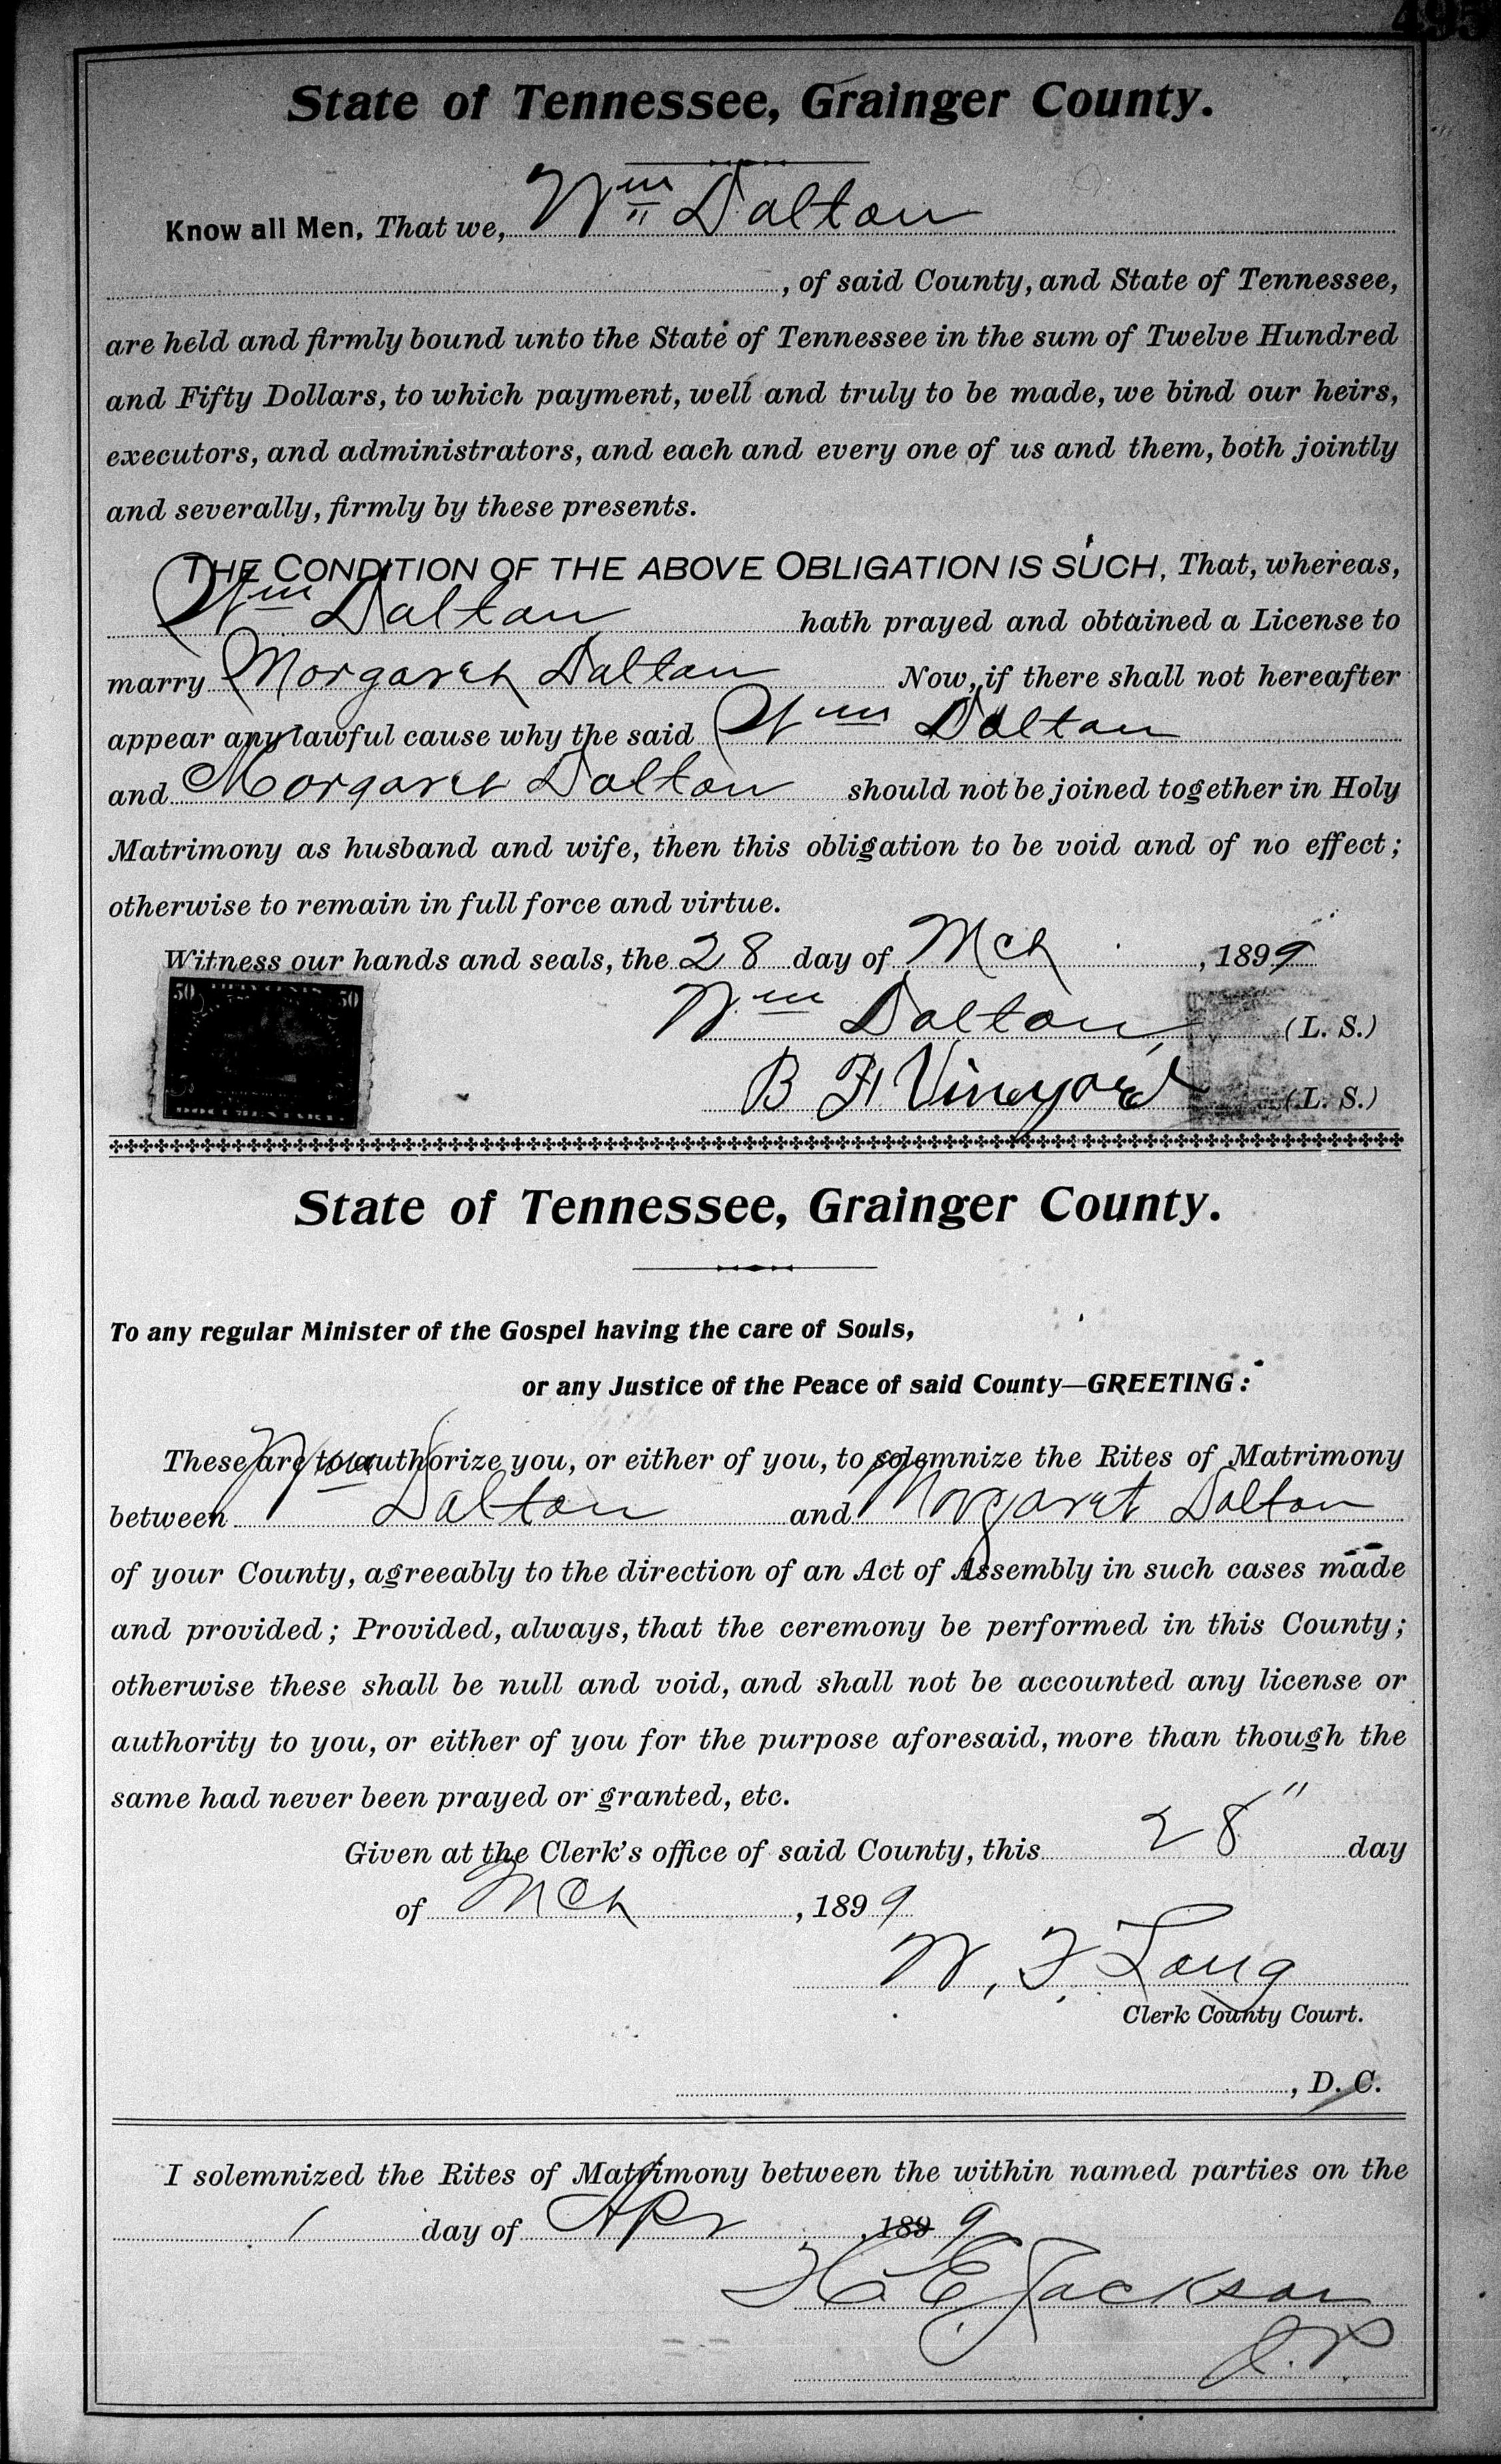 495
State of Tennessee, Grainger County.
Know all Men, That we, Wm Dalton
, of said County, and State of Tennessee,
are held and firmly bound unto the State of Tennessee in the sum of Twelve Hundred
and Fifty Dollars, to which payment, well and truly to be made, we bind our heirs,
executors, and administrators, and each and every one of us and them, both jointly
and severally, firmly by these presents.
THE CONDITION OF THE ABOVE OBLIGATION IS SUCH, That, whereas,
Wm Dalton hath prayed and obtained a License to
marry Morgaret Dalton Now, if there shall not hereafter
appear any lawful cause why the said Wm Dalton
and Morgaret Dalton should not be joined together in Holy
Matrimony as husband and wife, then this obligation to be void and of no effect;
otherwise to remain in full force and virtue.
Witness our hands and seals, the 28 day of Mch , 1899
50 50
Wm Dalton (L. S.)
B F Vineyard (L. S.)
State of Tennessee, Grainger County.
To any regular Minister of the Gospel having the care of Souls,
or any Justice of the Peace of said County—GREETING:
These are to authorize you, or either of you, to solemnize the Rites of Matrimony
between Wm Dalton and Morgaret Dalton
of your County, agreeably to the direction of an Act of Assembly in such cases made
and provided; Provided, always, that the ceremony be performed in this County;
otherwise these shall be null and void, and shall not be accounted any license or
authority to you, or either of you for the purpose aforesaid, more than though the
same had never been prayed or granted, etc.
Given at the Clerk's office of said County, this 28" day
of Mch , 1899
W. F. Long
Clerk County Court.
, D. C.
I solemnized the Rites of Matrimony between the within named parties on the
1 day of Apr , 189 9
H E Jackson
J. P.